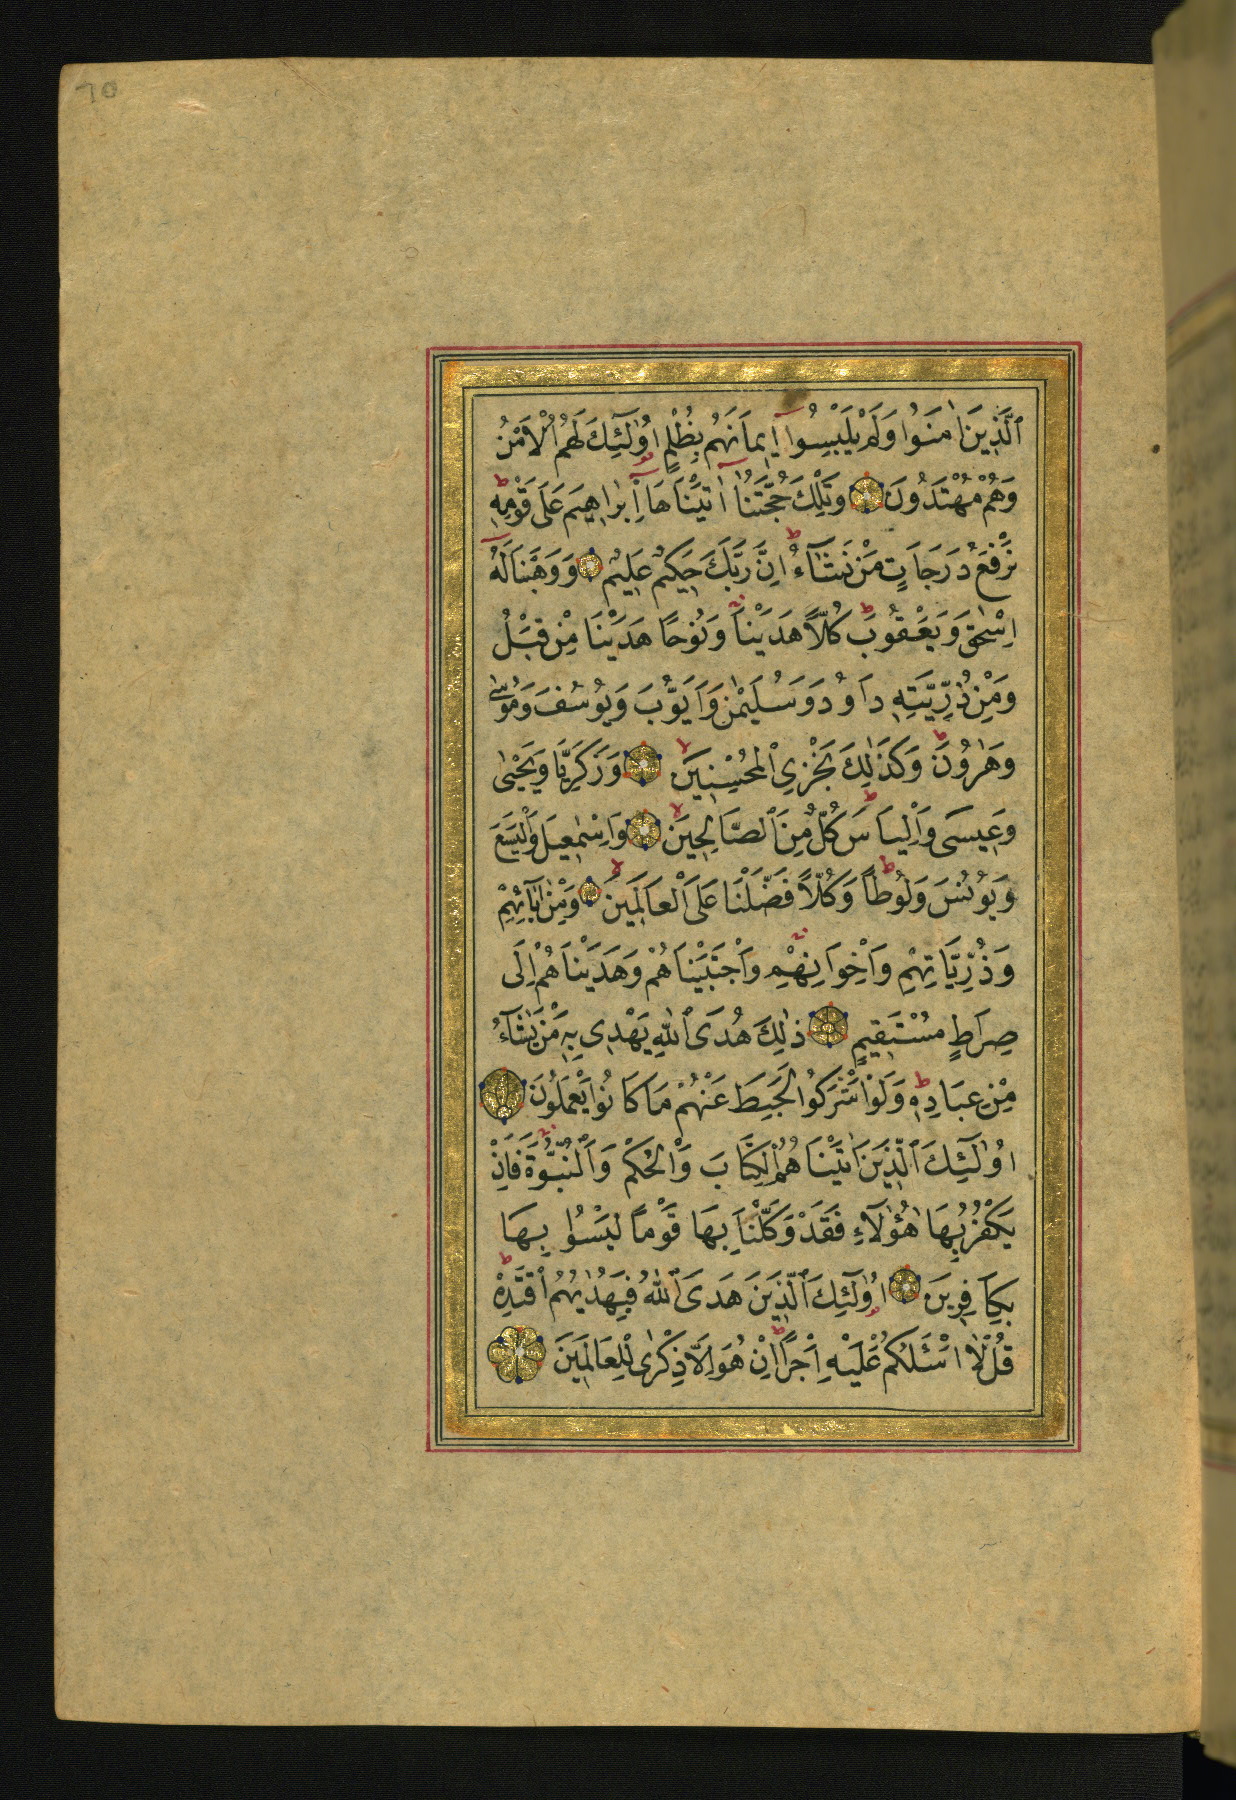 70
اَلَّذِينَ اٰمَنُوا وَلَمْ يَلْبِسُوا اِيمَانَهُمْ بِظُلْمٍ اُولٰٓئِكَ لَهُمُ الْاَمْنُ
وَهُمْ مُهْتَدُونَ وَتِلْكَ حُجَّتُنَا اٰتَيْنَاهَا اِبْرَاهِيمَ عَلٰى قَوْمِهِ
نَرْفَعُ دَرَجَاتٍ مَنْ نَشَآءُ اِنَّ رَبَّكَ حَكِيمٌ عَلِيمٌ وَوَهَبْنَا لَهُ
اِسْحٰقَ وَيَعْقُوبَ كُلًّا هَدَيْنَا وَنُوحًا هَدَيْنَا مِنْ قَبْلُ
وَمِنْ ذُرِّيَّتِهِ دَاوُدَ وَسُلَيْمٰنَ وَاَيُّوبَ وَيُوسُفَ وَمُوسٰى
وَهٰرُونَ وَكَذٰلِكَ نَجْزِي الْمُحْسِنِينَ وَزَكَرِيَّا وَيَحْيٰى
وَعِيسَى وَاِلْيَاسَ كُلٌّ مِنَ الصَّالِحِينَ وَاِسْمٰعِيلَ وَالْيَسَعَ
وَيُونُسَ وَلُوطًا وَكُلًّا فَضَّلْنَا عَلَى الْعَالَمِينَ وَمِنْ اٰبَآئِهِمْ
وَذُرِّيَّاتِهِمْ وَاِخْوَانِهِمْ وَاجْتَبَيْنَاهُمْ وَهَدَيْنَاهُمْ اِلَى
صِرَاطٍ مُسْتَقِيمٍ ذٰلِكَ هُدَى اللّٰهِ يَهْدِي بِهِ مَنْ يَشَآءُ
مِنْ عِبَادِهِ وَلَوْ اَشْرَكُوا لَحَبِطَ عَنْهُمْ مَا كَانُوا يَعْمَلُونَ
اُولٰٓئِكَ الَّذِينَ اٰتَيْنَاهُمُ الْكِتَابَ وَالْحُكْمَ وَالنُّبُوَّةَ فَاِنْ
يَكْفُرْ بِهَا هٰٓؤُلَآءِ فَقَدْ وَكَّلْنَا بِهَا قَوْمًا لَيْسُوا بِهَا
بِكَافِرِينَ اُولٰٓئِكَ الَّذِينَ هَدَى اللّٰهُ فَبِهُدٰيهُمُ اقْتَدِهْ
قُلْ لَا اَسْئَلُكُمْ عَلَيْهِ اَجْرًا اِنْ هُوَ اِلَّا ذِكْرٰى لِلْعَالَمِينَ